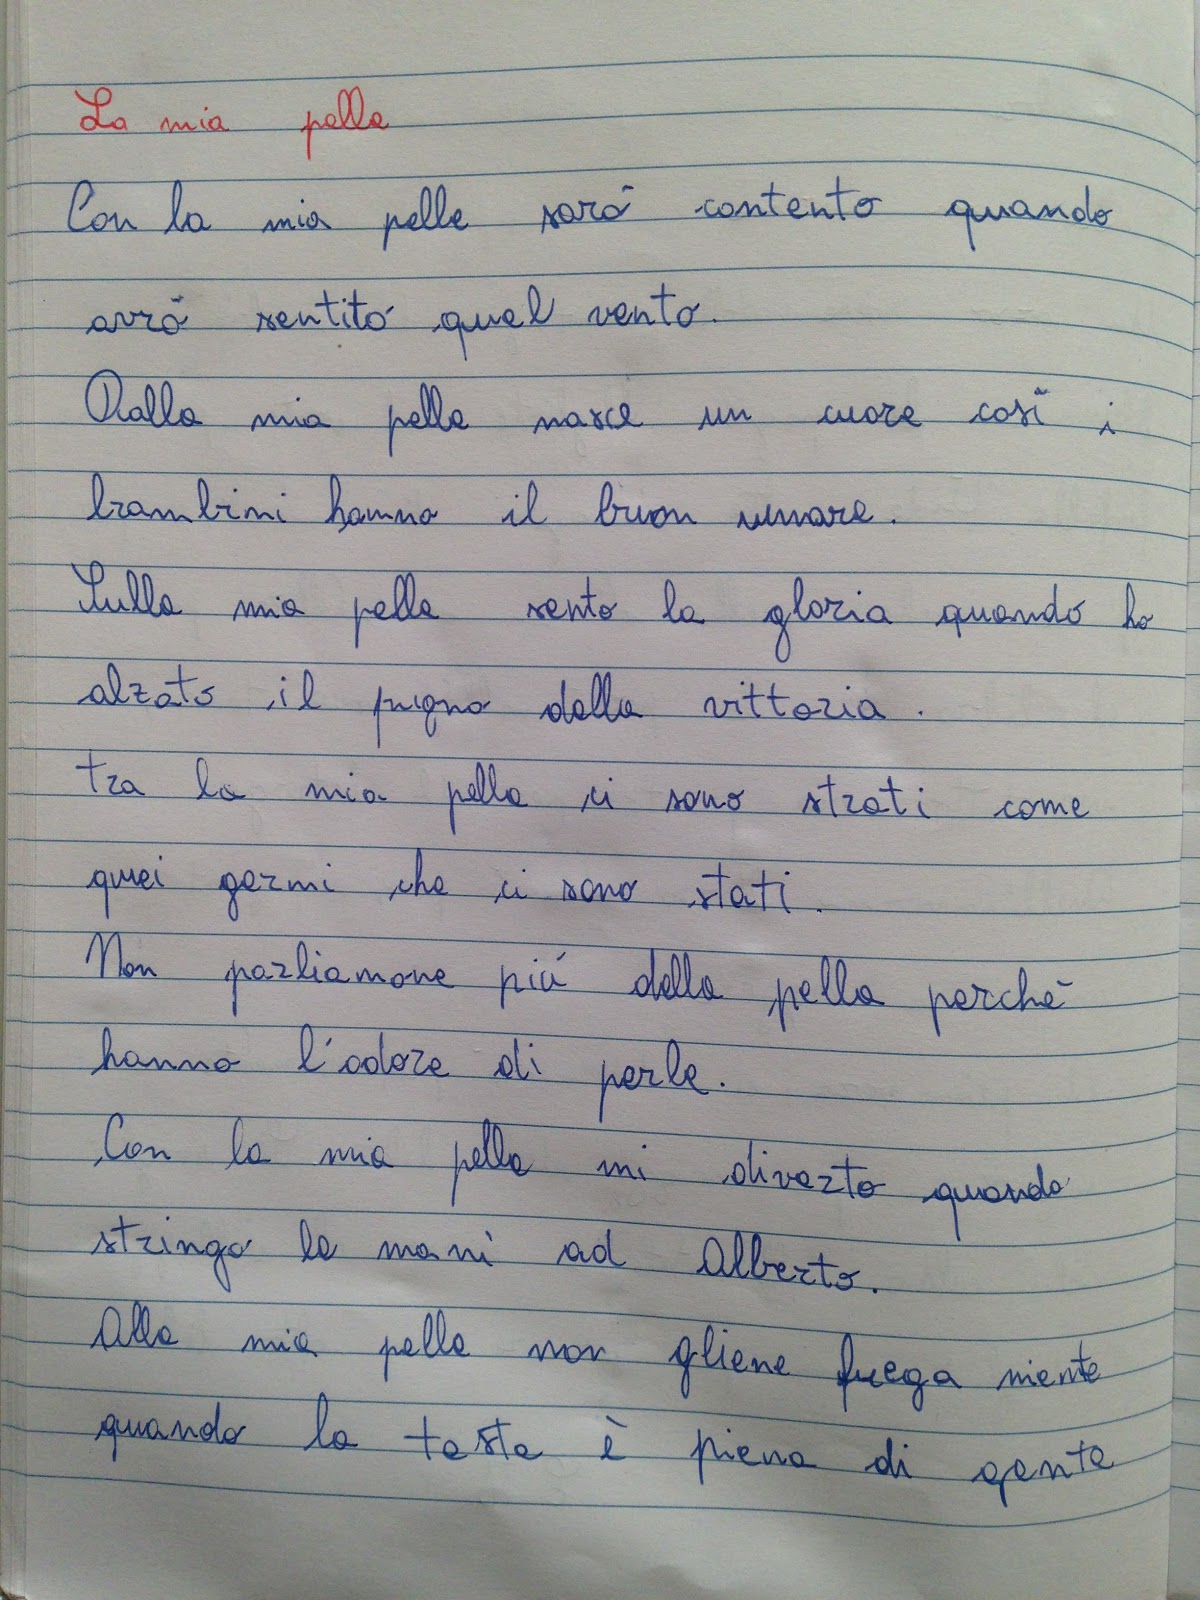 La mia pelle
Con la mia pelle sarò contento quando
avrò sentito quel vento.
Dalla mia pelle nasce un cuore così i
brambini hanno il buon umore.
Sulla mia pelle sento la gloria quando ho
alzato il pugno della vittoria.
tra la mia pelle ci sono strati come
quei germi che ci sono stati.
Non parliamone più della pelle perchè
hanno l'odore di perle.
Con la mia pelle mi diverto quando
stringo le mani ad Alberto.
Alla mia pelle non gliene frega niente
quando la testa è piena di gente